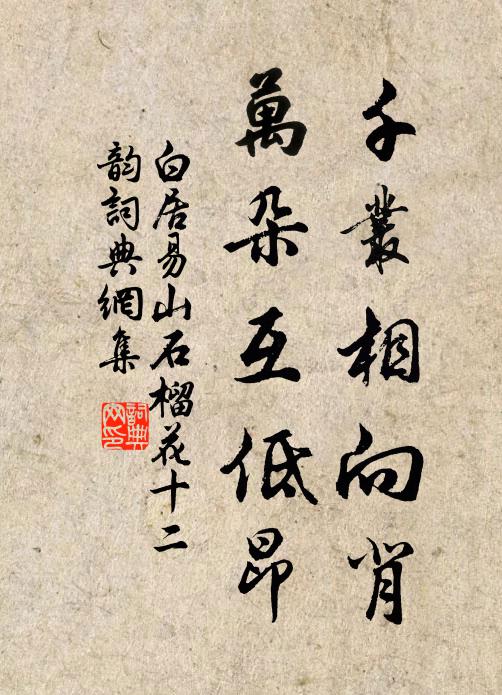 千叢相向背
萬朵互低昂
白居易山石榴花十二
韵詞典網集
詞典網印